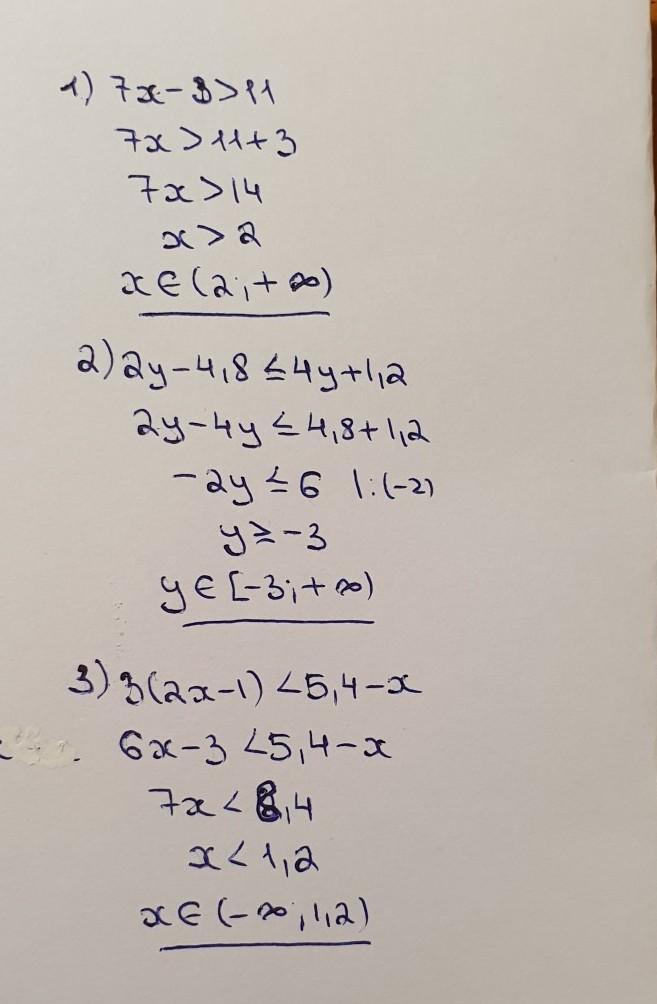 1) 7x-3>11
7x>11+3
7x>14
x>2
x∈(2;+∞)
2) 2y-4,8≤4y+1,2
2y-4y≤4,8+1,2
-2y≤6 |:(-2)
y≥-3
y∈[-3;+∞)
3) 3(2x-1)<5,4-x
6x-3<5,4-x
7x<8,4
x<1,2
x∈(-∞;1,2)